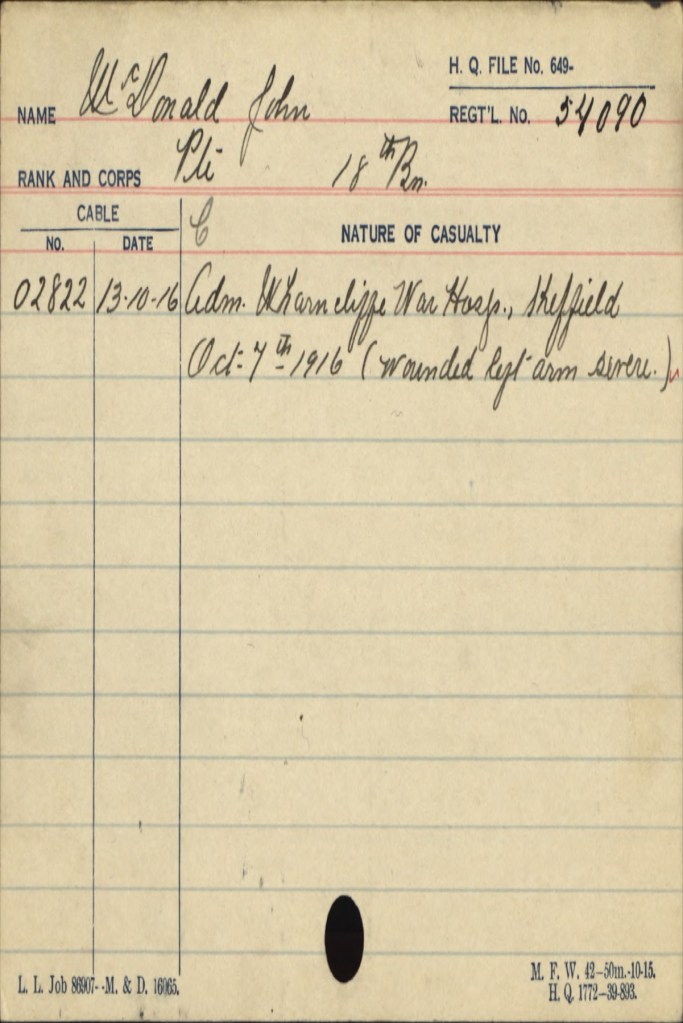 H. Q. FILE No. 649-
NAME McDonald John
REGT'L. No. 54090
RANK AND CORPS Pte 18th Bn.
CABLE
C NATURE OF CASUALTY
No. DATE
02822 13-10-16 Adm. Wharncliffe War Hosp., Sheffield
Oct. 7th 1916 (wounded left arm severe.)
L. L. Job 86907--M. & D. 16065.
M. F. W. 42-50m.-10-15.
H. Q. 1772-39-893.